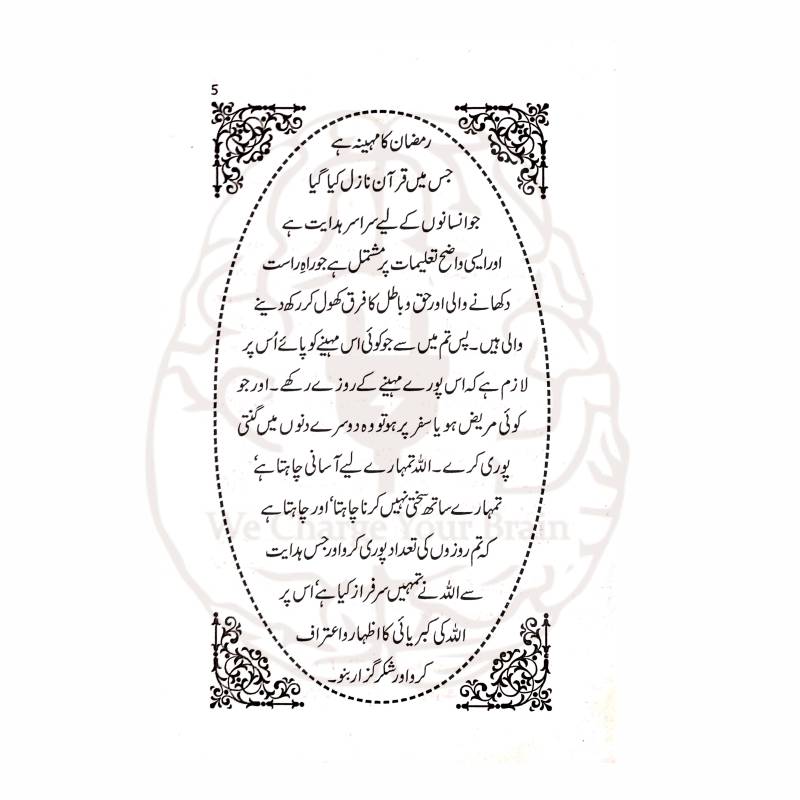 5
رمضان کا مہینہ ہے
جس میں قرآن نازل کیا گیا
جو انسانوں کے لیے سراسر ہدایت ہے
اور ایسی واضح تعلیمات پر مشتمل ہے جو راہِ راست
دکھانے والی اور حق و باطل کا فرق کھول کر رکھ دینے
والی ہیں۔ پس تم میں سے جو کوئی اس مہینے کو پائے اُس پر
لازم ہے کہ اس پورے مہینے کے روزے رکھے۔ اور جو
کوئی مریض ہو یا سفر پر ہو تو وہ دوسرے دنوں میں گنتی
پوری کرے۔ اللہ تمہارے لیے آسانی چاہتا ہے‘
تمہارے ساتھ سختی نہیں کرنا چاہتا‘ اور چاہتا ہے
کہ تم روزوں کی تعداد پوری کرو اور جس ہدایت
سے اللہ نے تمہیں سرفراز کیا ہے‘ اس پر
اللہ کی کبریائی کا اظہار و اعتراف
کرو اور شکر گزار بنو۔
We Charge Your Brain